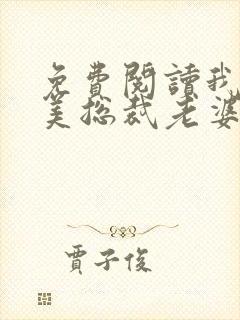 免費閱讀我
美总裁老婆
賈子俊